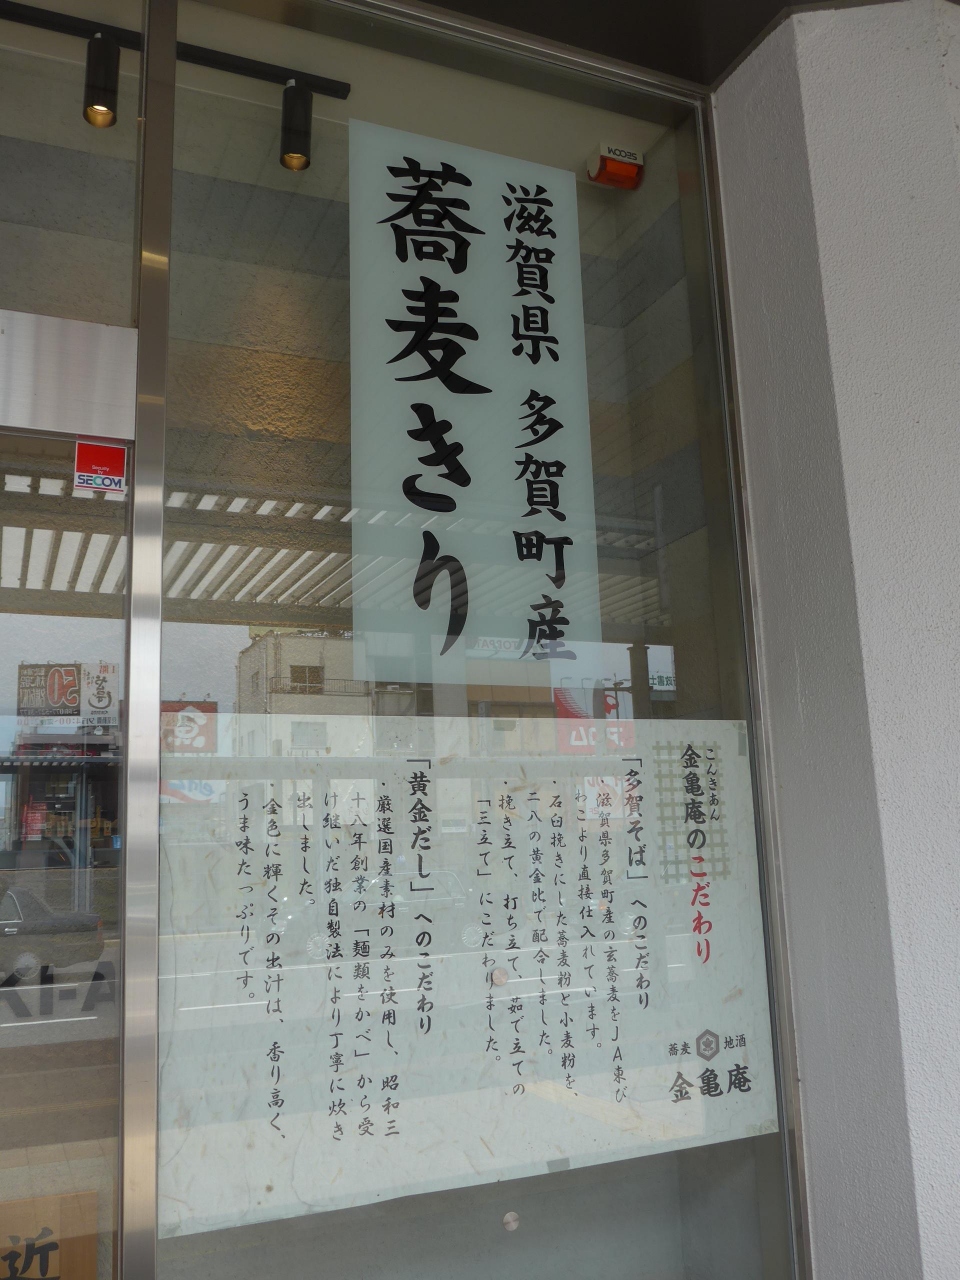 滋賀県 多賀町産
蕎麦きり
SECOM
Security by
SECOM
こんきあん
金亀庵のこだわり
蕎麦 地酒
金亀庵
「多賀そば」へのこだわり
・滋賀県多賀町産の玄蕎麦をJA東び
わこより直接仕入れています。
・石臼挽きにした蕎麦粉と小麦粉を、
二八の黄金比で配合しました。
・挽き立て、打ち立て、茹で立ての
「三立て」にこだわりました。
「黄金だし」へのこだわり
・厳選国産素材のみを使用し、昭和三
十八年創業の「麺類をかべ」から受
け継いだ独自製法により丁寧に炊き
出しました。
・金色に輝くその出汁は、香り高く、
うま味たっぷりです。
近